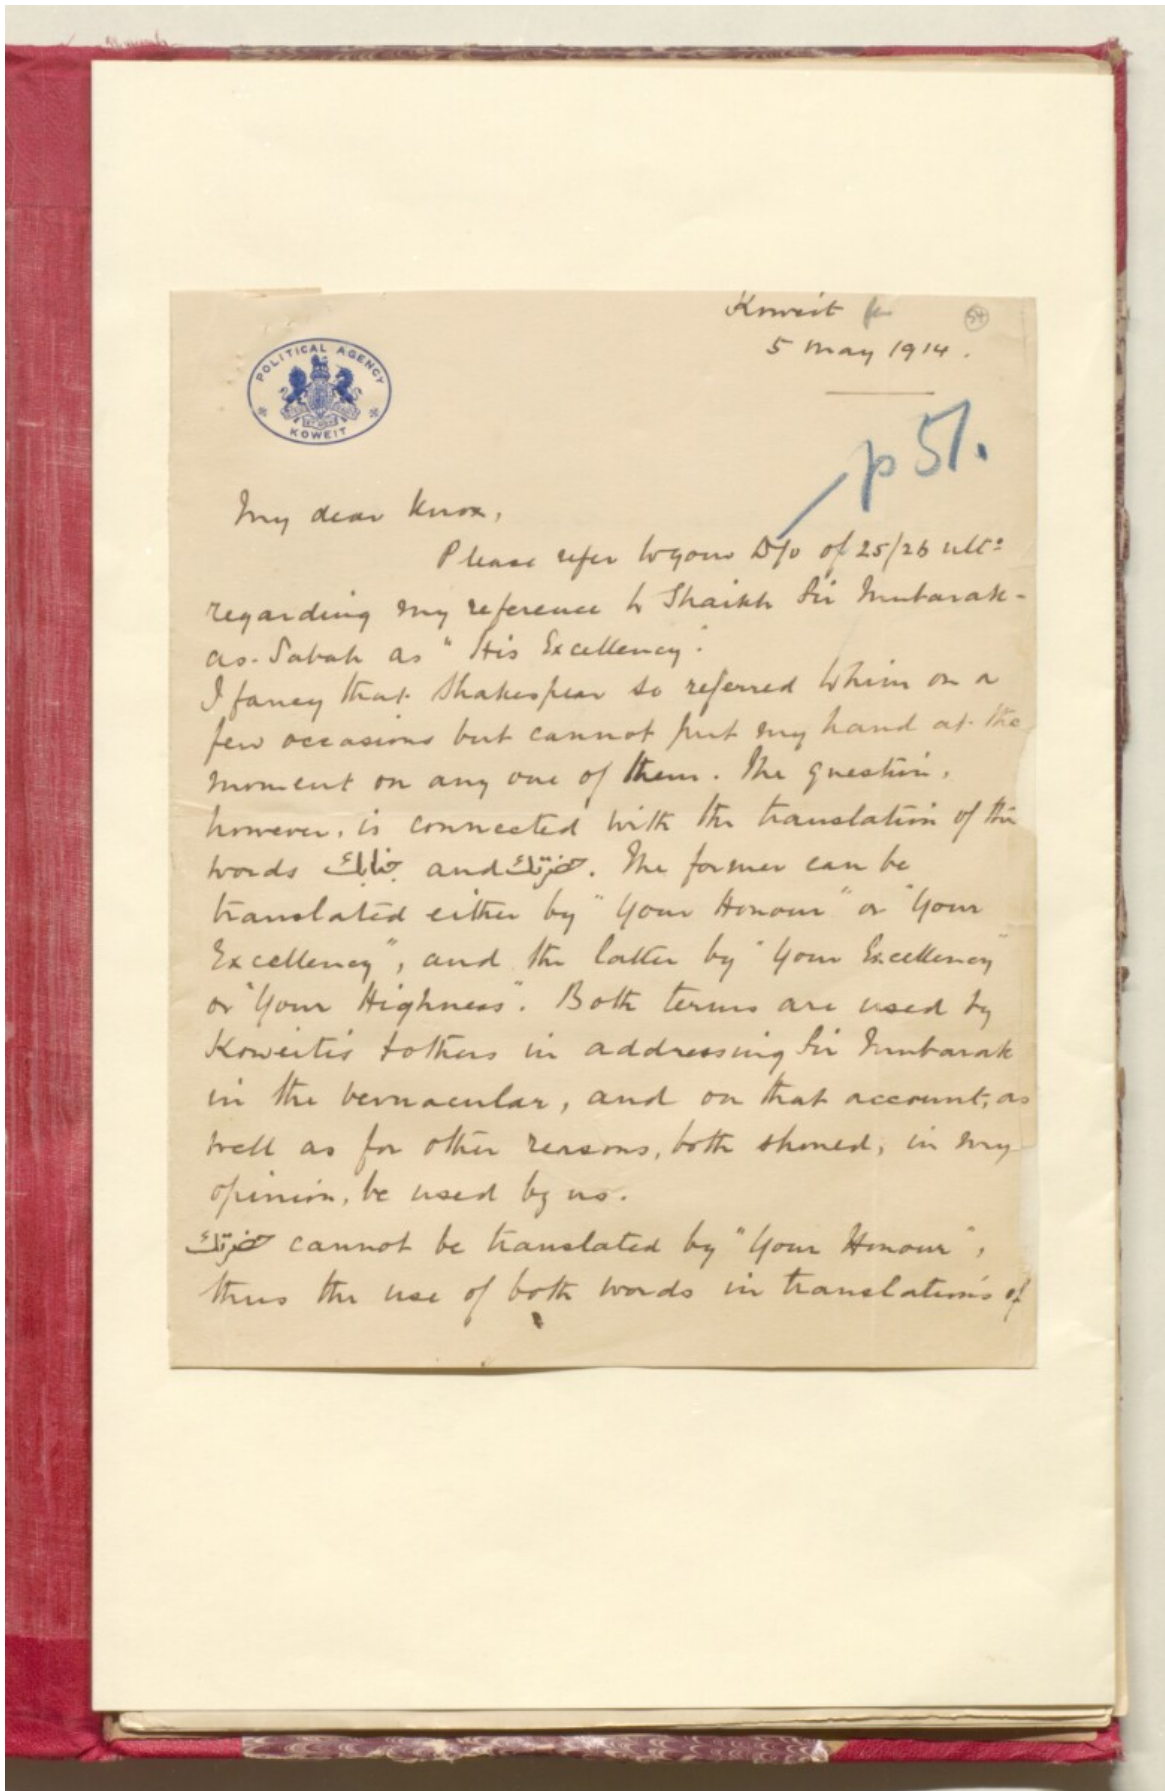 Koweit
54
5 May 1914.
POLITICAL AGENCY
KOWEIT
p 51.
My dear Knox,
Please refer to your D/o of 25/26 ulto
regarding my reference to Shaikh Sir Mubarak-
as-Sabah as "His Excellency".
I fancy that Shakespear so referred to him on a
few occasions but cannot put my hand at the
moment on any one of them. The question,
however, is connected with the translation of the
words جنابك and حضرتك. The former can be
translated either by "Your Honour" or "Your
Excellency", and the latter by "Your Excellency"
or "Your Highness". Both terms are used by
Koweitis & others in addressing Sir Mubarak
in the vernacular, and on that account, as
well as for other reasons, both should, in my
opinion, be used by us.
حضرتك cannot be translated by "Your Honour",
thus the use of both words in translations of